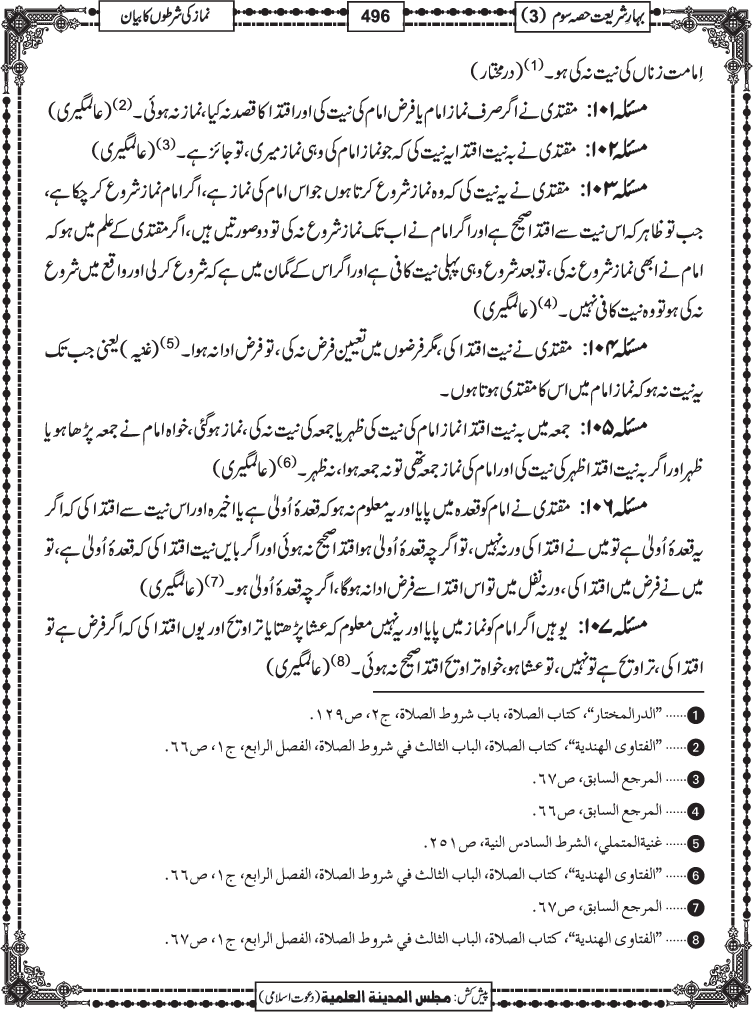 بہارِ شریعت حصہ سوم (3)
496
نماز کی شرطوں کا بیان
اِمامت زناں کی نیت نہ کی ہو۔ (1) (درمختار)
مسئلہ ۱۰۱: مقتدی نے اگر صرف نماز امام یا فرض امام کی نیت کی اور اقتدا کا قصد نہ کیا، نماز نہ ہوئی۔ (2) (عالمگیری)
مسئلہ ۱۰۲: مقتدی نے بہ نیت اقتدا یہ نیت کی کہ جو نماز امام کی وہی نماز میری، تو جائز ہے۔ (3) (عالمگیری)
مسئلہ ۱۰۳: مقتدی نے یہ نیت کی کہ وہ نماز شروع کرتا ہوں جو اس امام کی نماز ہے، اگر امام نماز شروع کر چکا ہے،
جب تو ظاہر کہ اس نیت سے اقتدا صحیح ہے اور اگر امام نے اب تک نماز شروع نہ کی تو دو صورتیں ہیں، اگر مقتدی کے علم میں ہو کہ
امام نے ابھی نماز شروع نہ کی، تو بعد شروع وہی پہلی نیت کافی ہے اور اگر اس کے گمان میں ہے کہ شروع کر لی اور واقع میں شروع
نہ کی ہو تو وہ نیت کافی نہیں۔ (4) (عالمگیری)
مسئلہ ۱۰۴: مقتدی نے نیت اقتدا کی، مگر فرضوں میں تعیین فرض نہ کی، تو فرض ادا نہ ہوا۔ (5) (غنیہ) یعنی جب تک
یہ نیت نہ ہو کہ نماز امام میں اس کا مقتدی ہوتا ہوں۔
مسئلہ ۱۰۵: جمعہ میں بہ نیت اقتدا نماز امام کی نیت کی ظہر یا جمعہ کی نیت نہ کی، نماز ہوگئی، خواہ امام نے جمعہ پڑھا ہو یا
ظہر اور اگر بہ نیت اقتدا ظہر کی نیت کی اور امام کی نماز جمعہ تھی تو نہ جمعہ ہوا، نہ ظہر۔ (6) (عالمگیری)
مسئلہ ۱۰۶: مقتدی نے امام کو قعدہ میں پایا اور یہ معلوم نہ ہو کہ قعدۂ اُولیٰ ہے یا اخیرہ اور اس نیت سے اقتدا کی کہ اگر
یہ قعدۂ اُولیٰ ہے تو میں نے اقتدا کی ورنہ نہیں، تو اگرچہ قعدۂ اُولیٰ ہو اقتدا صحیح نہ ہوئی اور اگر بایں نیت اقتدا کی کہ قعدۂ اُولیٰ ہے، تو
میں نے فرض میں اقتدا کی، ورنہ نفل میں تو اس اقتدا سے فرض ادا نہ ہوگا، اگرچہ قعدۂ اُولیٰ ہو۔ (7) (عالمگیری)
مسئلہ ۱۰۷: یوہیں اگر امام کو نماز میں پایا اور یہ نہیں معلوم کہ عشا پڑھتا یا تراویح اور یوں اقتدا کی کہ اگر فرض ہے تو
اقتدا کی، تراویح ہے تو نہیں، تو عشا ہو، خواہ تراویح اقتدا صحیح نہ ہوئی۔ (8) (عالمگیری)
1 ...... ”الدرالمختار“، كتاب الصلاة، باب شروط الصلاة، ج٢، ص١٢٩.
2 ...... ”الفتاوى الهندية“، كتاب الصلاة، الباب الثالث في شروط الصلاة، الفصل الرابع، ج١، ص٦٦.
3 ...... المرجع السابق، ص٦٧.
4 ...... المرجع السابق، ص٦٦.
5 ...... غنيةالمتملي، الشرط السادس النية، ص٢٥١.
6 ...... ”الفتاوى الهندية“، كتاب الصلاة، الباب الثالث في شروط الصلاة، الفصل الرابع، ج١، ص٦٦.
7 ...... المرجع السابق، ص٦٧.
8 ...... ”الفتاوى الهندية“، كتاب الصلاة، الباب الثالث في شروط الصلاة، الفصل الرابع، ج١، ص٦٧.
پیش کش: مجلس المدینۃ العلمیۃ (دعوت اسلامی)